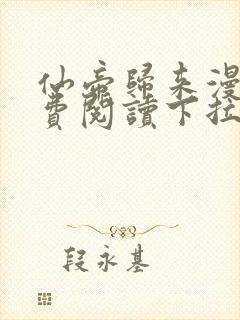 仙帝歸来漫
費閱讀下拉
段永基